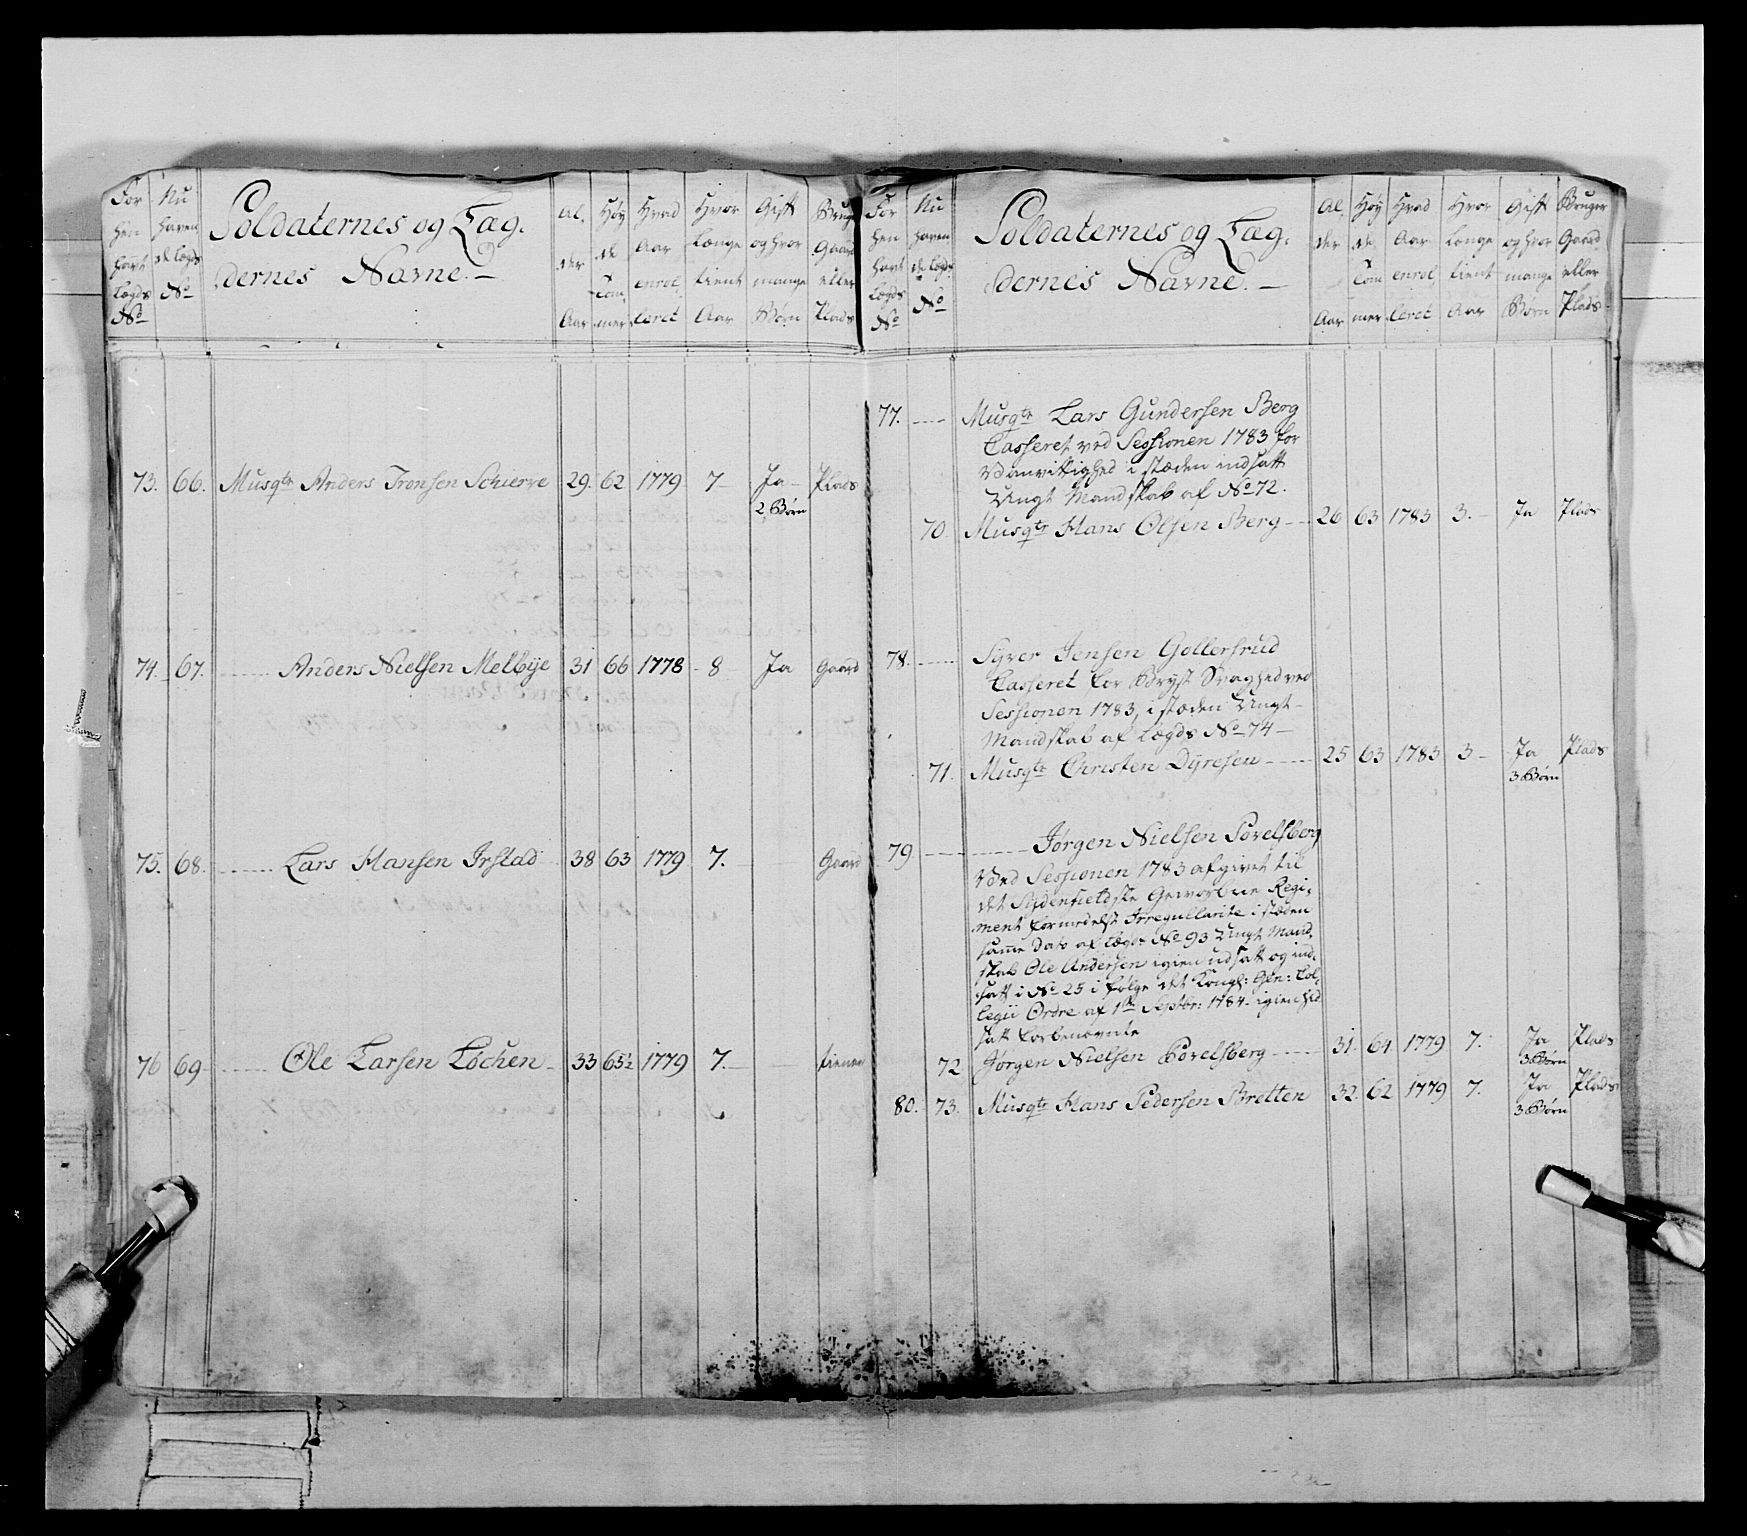 For
hen
havt
Lægds
No
Nu
haven
de Lægds
No
Soldaternes og Læg-
dernes Navne.
Al,
der
Aar
Høy
de
Tom,
mer
Hvad
Aar
enrol,
leret
Hvor
Længe
tient
Aar
Gift
og hvor
mange
Børn
Bruger
Gaard
eller
Plads
73. 66. Musqtr Anders Tronsen Schierve 29. 62 1779 7 Ja Plads
2 Børn
74. 67. Anders Nielsen Melbÿe 31 66 1778 8 Ja Gaard
75. 68. Lars Hansen Irstad 38 63 1779 7. Gaard
76 69 Ole Larsen Løchen 33 65½ 1779 7. tiener
For
hen
havt
Lægds
No
Nu
haven
de Lægds
No
Soldaternes og Læg-
dernes Navne.
Al,
der
Aar
Høy
de,
Tom
mer
Hvad
Aar
enrol,
leret
Hvor
Længe
tient
Aar
Gift
og hvor
mange
Børn
Bruger
Gaard
eller
Plads
77. Musqtr Lars Gundersen Berg
Casseret ved Sessionen 1783 for
Vanvittighed i stæden indsatt
Ungt Mandskab af No 72.
70. Musqtr Hans Olsen Berg 26 63 1783 3. Ja Plads
78. Syver Jensen Gollersrud
Casseret for Bryst Svaghed ved
Sessionen 1783, i stæden Ungt
Mandskab af Lægds No 74
71. Musqtr Christen Dÿresen 25 63 1783 3 Ja Plads
3 Børn
79 Jørgen Nielsen Povelsberg
Ved Sessionen 1783 afgivet til
det Sÿdenfieldske Gevorbne Regi-
ment formedelst Irregullarite i stæden
samme Dato af Lægds No 93 Ungt Mand,
skab Ole Andersen igien udsatt og ind,
satt i No 25 i følge det Kongl: Gen: Col,
legii Ordre af 1ste Septbr: 1784 igien ind
satt forbenævnte
72 Jørgen Nielsen Povelsberg 31. 64 1779 7. Ja Plads
3 Børn
80. 73. Musqtr Hans Pedersen Bretten 32. 62 1779 7. Ja Plads
3 Børn